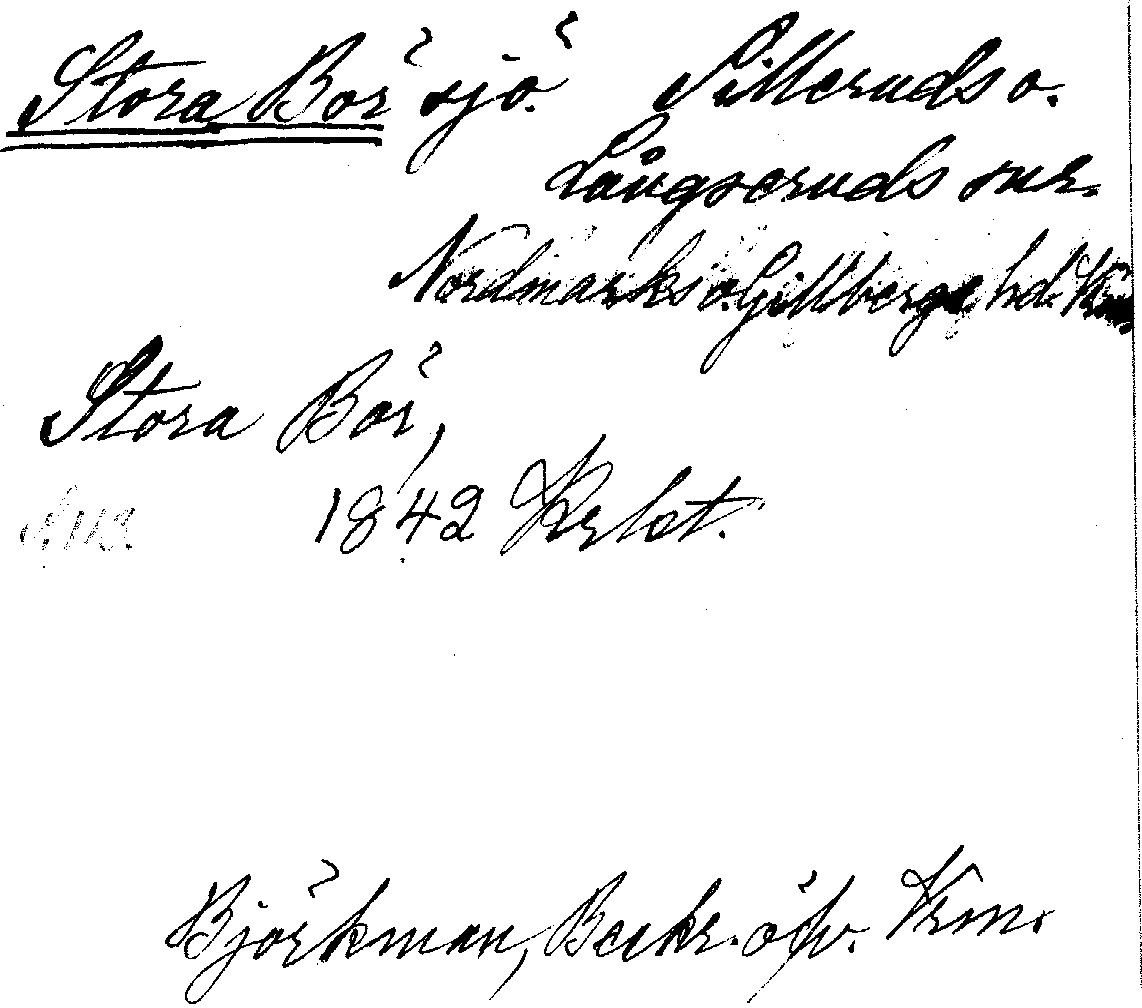 Stora Bör sjö. Silleruds o.
Långseruds snr.
Nordmarks o. Gillbergs hd. Vrm.
Stora Bör,
1842 Krbt.
Björkman, Beskr. öfv. Vrm.